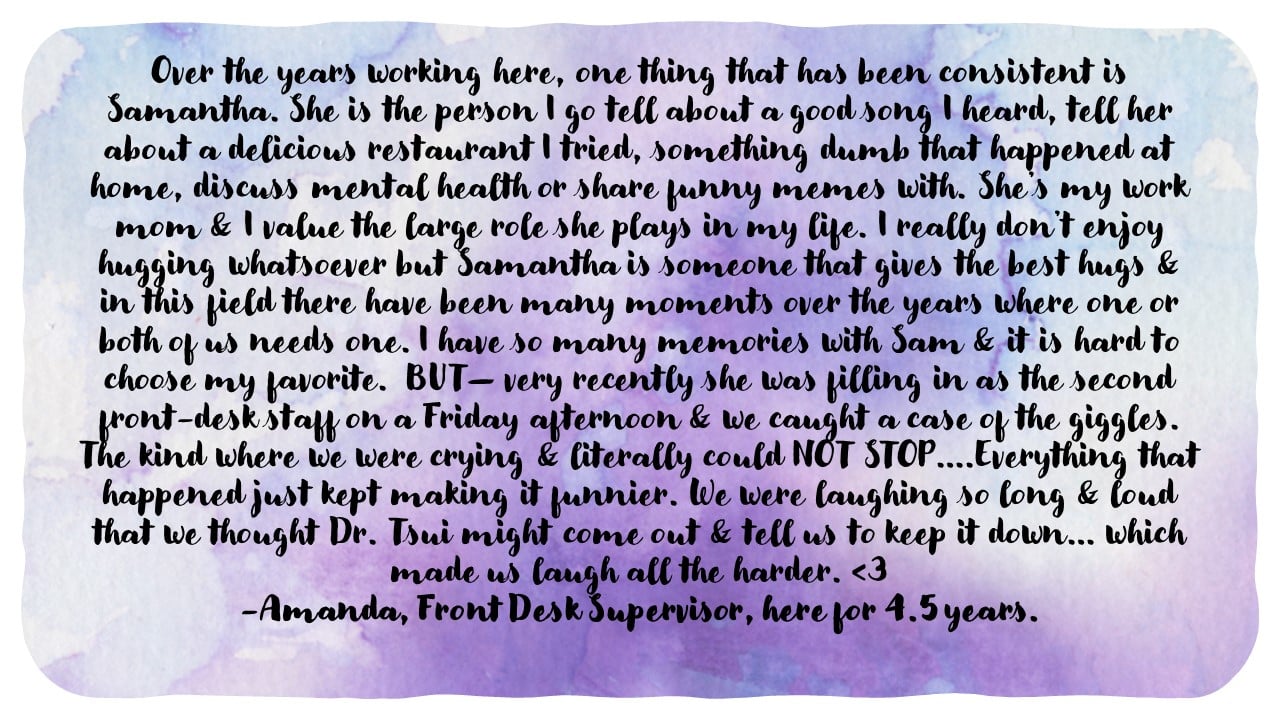 Over the years working here, one thing that has been consistent is
Samantha. She is the person I go tell about a good song I heard, tell her
about a delicious restaurant I tried, something dumb that happened at
home, discuss mental health or share funny memes with. She's my work
mom & I value the large role she plays in my life. I really don't enjoy
hugging whatsoever but Samantha is someone that gives the best hugs &
in this field there have been many moments over the years where one or
both of us needs one. I have so many memories with Sam & it is hard to
choose my favorite. BUT— very recently she was filling in as the second
front-desk staff on a Friday afternoon & we caught a case of the giggles.
The kind where we were crying & literally could NOT STOP....Everything that
happened just kept making it funnier. We were laughing so long & loud
that we thought Dr. Tsui might come out & tell us to keep it down... which
made us laugh all the harder. <3
-Amanda, Front Desk Supervisor, here for 4.5 years.